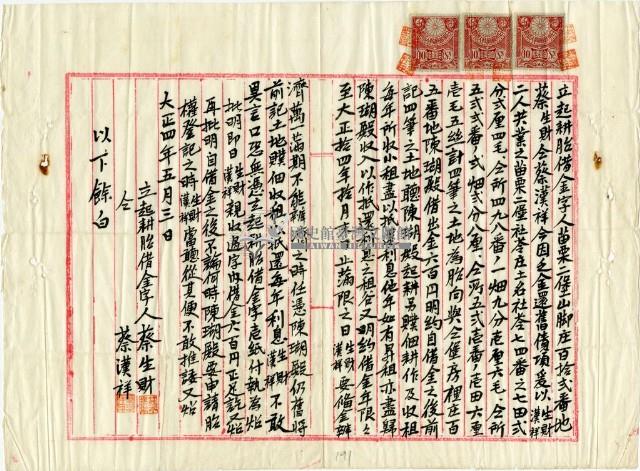 立起耕胎借金字人苗栗二堡山脚庄百拾弍番地
蔡生財仝蔡漢祥今因乏金還舊債項爰以生財漢祥
二人共業之苗栗二堡社苓庄土名社苓七四番之七田弍
分弍厘四毛仝所四九八番ノ一畑九分壱厘六毛仝所
五弍弍番ノ弍畑弍分八厘仝所五弍壱番ノ壱田六厘
壱毛五絲計四筆之土地為胎向與仝堡房裡庄百
五番地陳瑚殿借出金六百円明約自借金之後前
記四筆之土地聽陳瑚殿起耕另贌佃耕作及收租
每年所收小租盡抵利息他年如有昇租亦盡歸
陳瑚殿收入以作抵還利息之租谷又明約借金年限
至大正拾四年拾月 止滿限之日生財漢祥要備金辦
濟萬一滿期不能 之時任憑陳瑚殿仍舊將
前記土地贌佃收租抵還每年利息生財漢祥不敢
異言口恐無憑立起耕胎借金字壱紙付執為炤
批明即日生財漢祥親收過字內借金六百円正足訖炤
再批明自借金之後不論何時陳瑚殿要申請胎
權登記之時生財漢祥當聽從其便不敢推諉又炤
大正四年五月三日
立起耕胎借金字人蔡生財
仝 蔡漢祥
以下餘白
國史館臺灣文獻館
TAIWAN HISTORICA
191